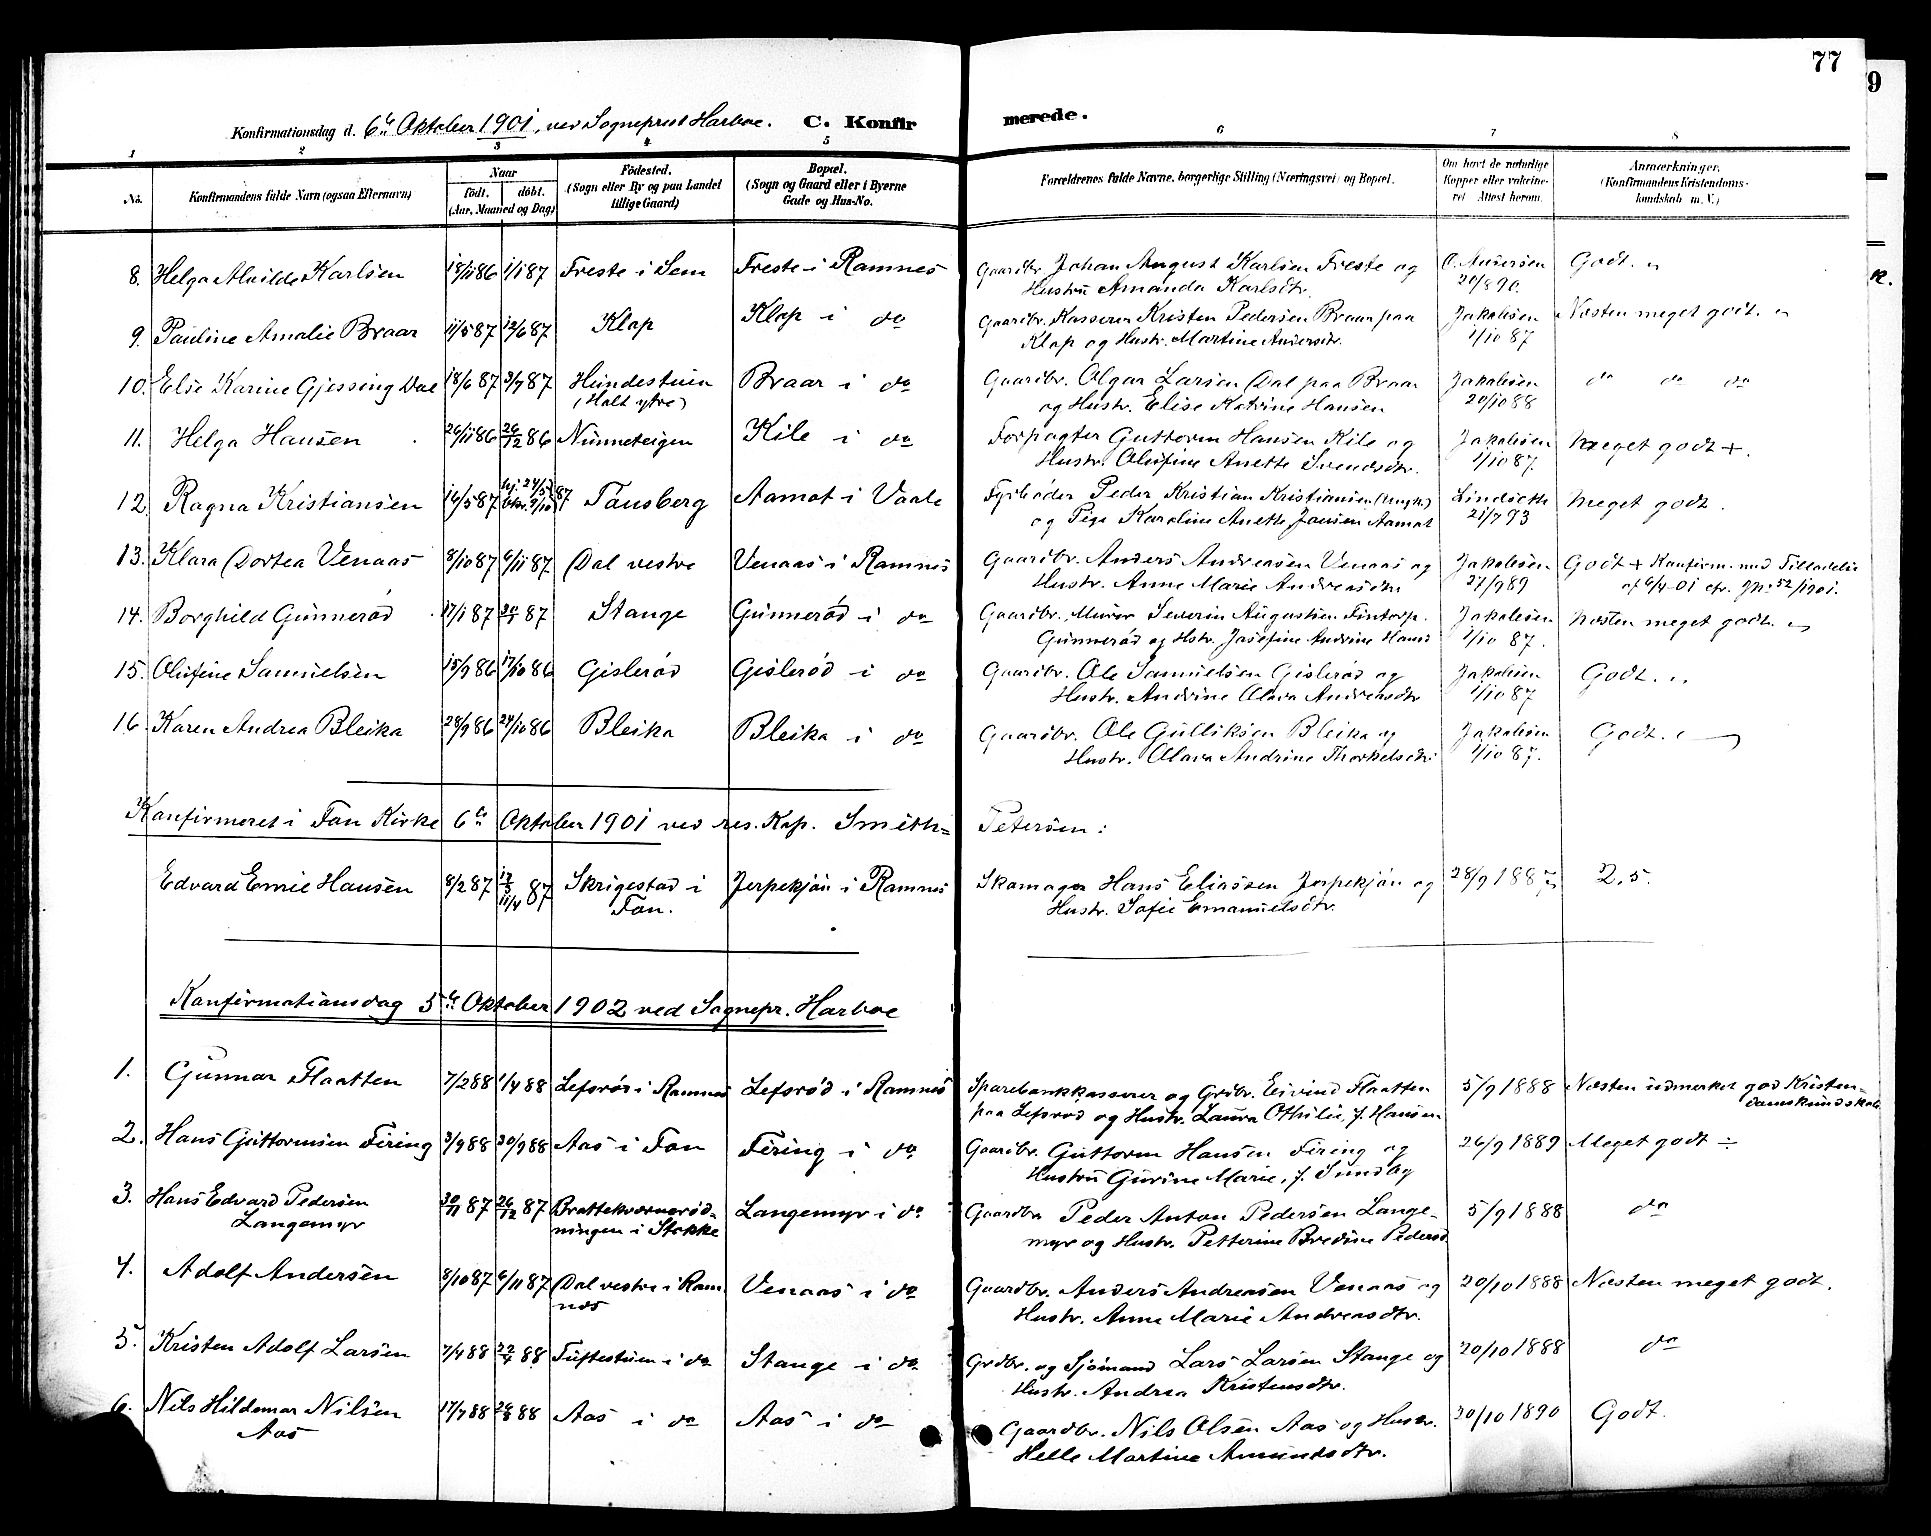 77
9
Konfirmationsdag d. 6te Oktober 1901, ved Sogneprest Harboe. C. Konfirmerede.
1 2 3 4 5 6 7 8
No. Konfirmandens fulde Navn (ogsaa Efternavn) Naar født. døbt. (Aar, Maaned og Dag) Fødested. (Sogn eller By og paa Landet tillige Gaard) Bopæl. (Sogn og Gaard eller i Byerne Gade og Hus-No. Forældrenes fulde Navne, borgerlige Stilling (Næringsvei) og Bopæl. Om havt de naturlige Kopper eller vakcineret. Attest herom. Anmærkninger. (Konfirmandens Kristendomskundskab m. V.)
8. Helga Alvilde Karlsen 18/11 86 1/1 87 Freste i Sem Freste i Ramnes Gaardbr. Johan August Karlsen Freste og O. Andersen Godt.
Hustru Amanda Karlsdtr. 20/8 90.
9. Pauline Amalie Braar 11/5 87 12/6 87 Klop Klop i do Gaardbr. Kasserer Kristen Pedersen Braar paa Jakobsen Næsten meget godt.
Klop og Hustr. Martine Andersdtr. 1/10 87
10. Else Karine Gjessing Dal 18/6 87 3/7 87 Hundestuen Braar i do Gaardbr. Olgar Larsen Dal paa Braar Jakobsen do do do
(Holt ytre) og Hustr. Elise Katrine Hansen 20/10 88
11. Helga Hansen 26/11 86 26/12 86 Nunneteigen Kile i do Forpagter Guttorm Hansen Kile og Jakobsen Meget godt +.
Hustr. Olufine Anette Svendsdtr. 1/10 87.
12. Ragna Kristiansen 16/5 87 87 Tønsberg Aamot i Vaale Fyrbøder Peder Kristian Kristiansen Lindseth Meget godt.
og Pige Karoline Anette Jansen Aamot 21/7 93
13. Klara Dortea Venaas 8/10 87 6/11 87 Dal vestre Venaas i Ramnes Gaardbr. Anders Andreasen Venaas og Jakobsen Godt + Konfirm. med Tilladelse
Hustr. Anne Marie Andreasdtr 27/9 89 af 6/4-01 cfr. 52/1901.
14. Borghild Gunnerød 17/1 87 87 Stange Gunnerød i do Gaardbr. Murer Severin Augustsen Fintorp Jakobsen Næsten meget godt.
Gunnerød og Hstr. Josefine Andrine Hansd 1/10 87.
15. Olufine Samuelsen 15/9 86 17/10 86 Gislerød Gislerød i do Gaardbr. Ole Samuelsen Gislerød og Jakobsen Godt.
Hustr. Andrine Olava Andreasdtr 1/10 87
16. Karen Andrea Bleika 28/9 86 24/10 86 Bleika Bleika i do Gaardbr. Ole Gulliksen Bleika og Jakobsen Godt.
Hustr. Olava Andrine Thorkelsdtr 1/10 87.
Konfirmeret i Fon Kirke 6te Oktober 1901 ved res. Kap. Smith-Petersen:
Edvard Emil Hansen 8/2 87 11/4 87 Skrigestad i Jerpekjøn i Ramnes Skomager Hans Eliassen Jerpekjøn og 28/9 1887 2,5.
Fon. Hustr. Sofie Emanuelsdtr.
Konfirmationsdag 5te Oktober 1902 ved Sognepr. Harboe
1. Gunnar Flaatten 7/2 88 1/4 88 Lefsrød i Ramnes Lefsrød i Ramnes Sparebankkasserer og Grdbr. Eivind Flaatten 5/9 1888 Næsten udmerket god Kristen-
paa Lefsrod og Hustr. Laura Othilie, f. Hansen domskundskab
2. Hans Guttormsen Firing 3/9 88 30/9 88 Aas i Fon Firing i do Gaardbr. Guttorm Hansen Firing og 26/9 1889 Meget godt ÷
Hustru Gurine Marie, f. Sundby
3. Hans Edvard Pedersen 30/11 87 26/12 87 Brattekværnerød- Langemyr i do Gaardbr Peder Anton Pedersen Lange- 5/9 1888 do
Langemyr ningen i Stokke myr og Hustr. Petterine Bredine Pedersd
4. Adolf Andersen 8/10 87 6/11 87 Dal vestre i Ram Venaas i do Gaardbr. Anders Andreasen Venaas og 20/10 1888 Næsten meget godt.
nes Hustr. Anne Marie Andreasdtr.
5. Kristen Adolf Larsen 7/4 88 22/4 88 Tuftestuen i do Stange i do Grdbr. og Sjømand Lars Larsen Stange og 20/10 1888 do
Hustr. Andrea Kristensdtr.
6. Nils Hildemar Nilsen 17/7 88 88 Aas i do Aas i do Gaardbr. Nils Olsen Aas og Hustr. 30/10 1890 Godt.
Aas Helle Martine Amundsdtr.